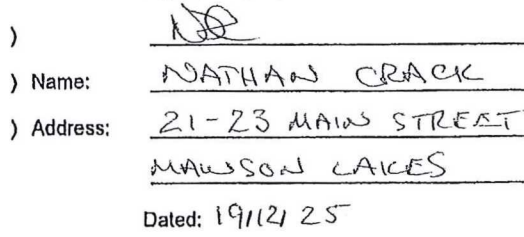 )
) Name: NATHAN CRACK
) Address: 21-23 MAIN STREET
MAWSON LAKES
Dated: 19/12/25